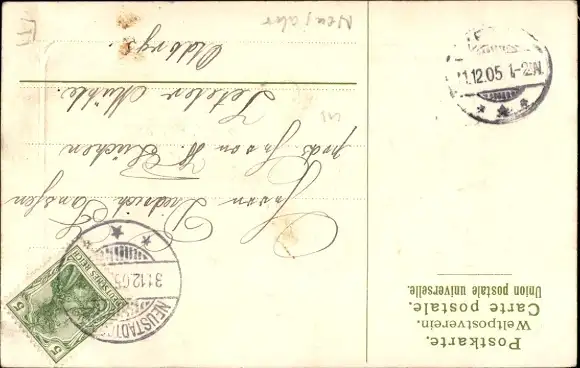 Postkarte.
Weltpostverein.
Carte postale.
Union postale universelle.
Herrn Diedrich Janssen
Herrn H. Lüchen
Peteler Mühle.
Oldbrg.
Neujahr
NEUSTADT
31.12.05
DEUTSCHES REICH
5
5
1.12.05 1-2N.